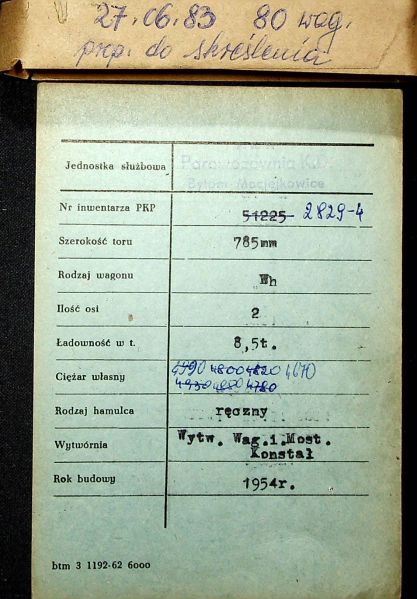 27.06.83 80 wag.
prp. do skreślenia
Jednostka służbowa Parowozownia K.D.
Bytom Maciejkowice
Nr inwentarza PKP 51225 2829-4
Szerokość toru 785mm
Rodzaj wagonu Wh
Ilość osi 2
Ładowność w t. 8,5t.
Ciężar własny 4990 4800 4820 4670
4930 4850 4780
Rodzaj hamulca ręczny
Wytwórnia Wytw. Wag.i.Most.
Konstal
Rok budowy 1954r.
btm 3 1192-62 6000